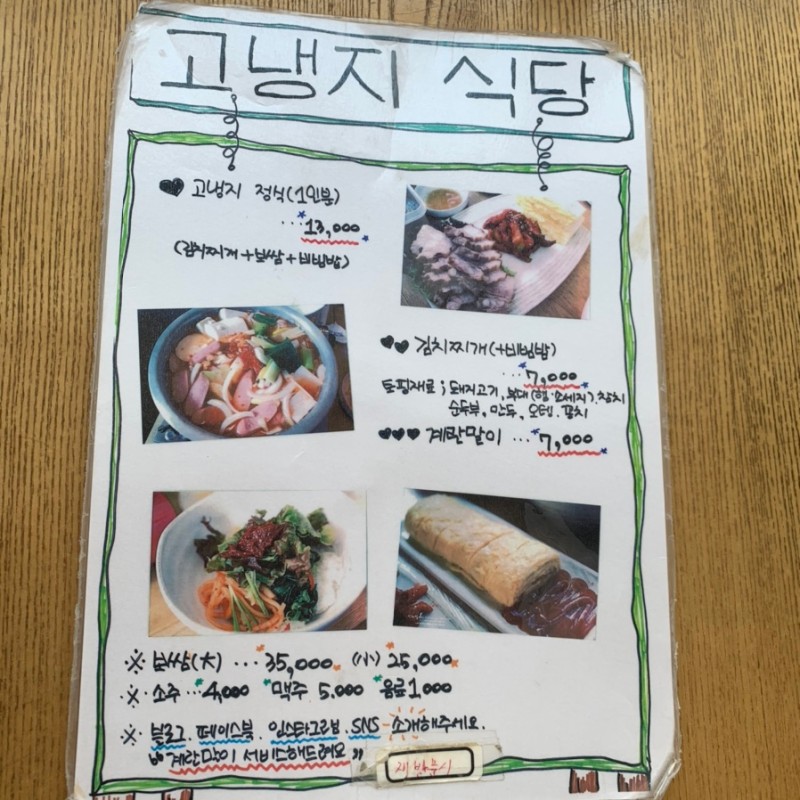 고냉지 식당
고냉지 정식(1인분)
...13,000
(김치찌개+보쌈+비빔밥)
김치찌개(+비빔밥)
...7,000
토핑재료; 돼지고기, 부대(햄.소세지), 참치
순두부, 만두, 오뎅, 꽁치
계란말이 ... 7,000
※ 보쌈(大) ... 35,000 (小) 25,000
※ 소주 ... 4,000 맥주 5,000 음료 1,000
※ 블로그. 페이스북. 인스타그램. SNS 소개해주세요.
"계란말이 서비스해드려요"
재방문시